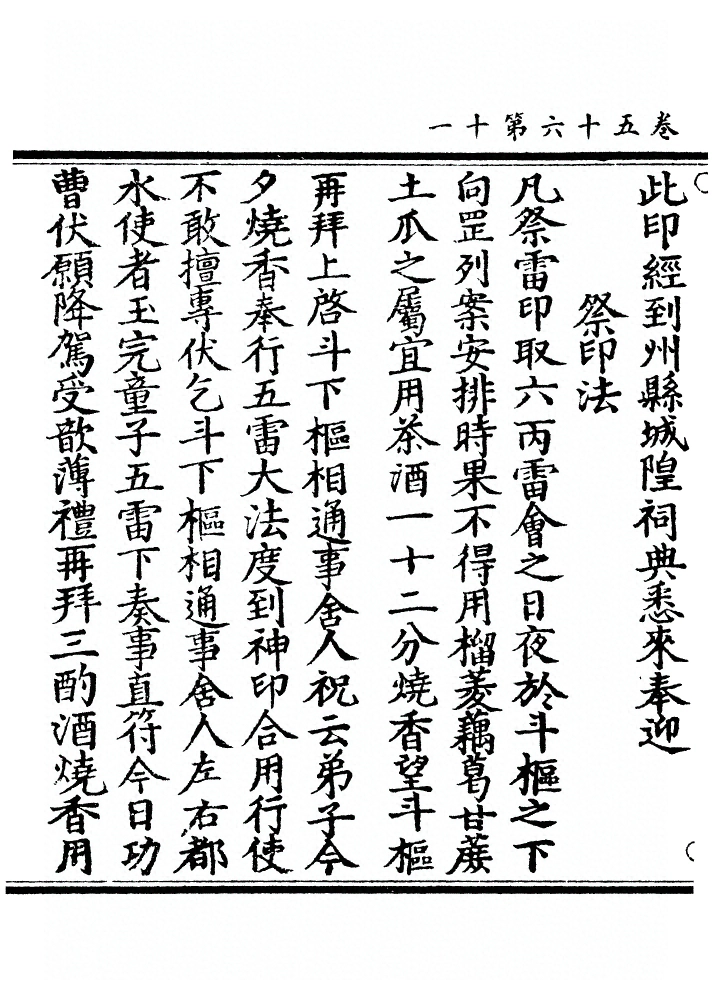 卷五十六第十一
此印經到州縣城隍祠典悉來奉迎
祭印法
凡祭雷印取六丙雷會之日夜於斗樞之下
向罡列案安排時果不得用榴菱藕葛甘蔗
土瓜之屬宜用茶酒一十二分燒香望斗樞
再拜上啓斗下樞相通事舍人祝云弟子今
夕燒香奉行五雷大法度到神印合用行使
不敢擅專伏乞斗下樞相通事舍人左右都
水使者玉完童子五雷下奏事直符今日功
曹伏願降駕受歆薄禮再拜三酌酒燒香用